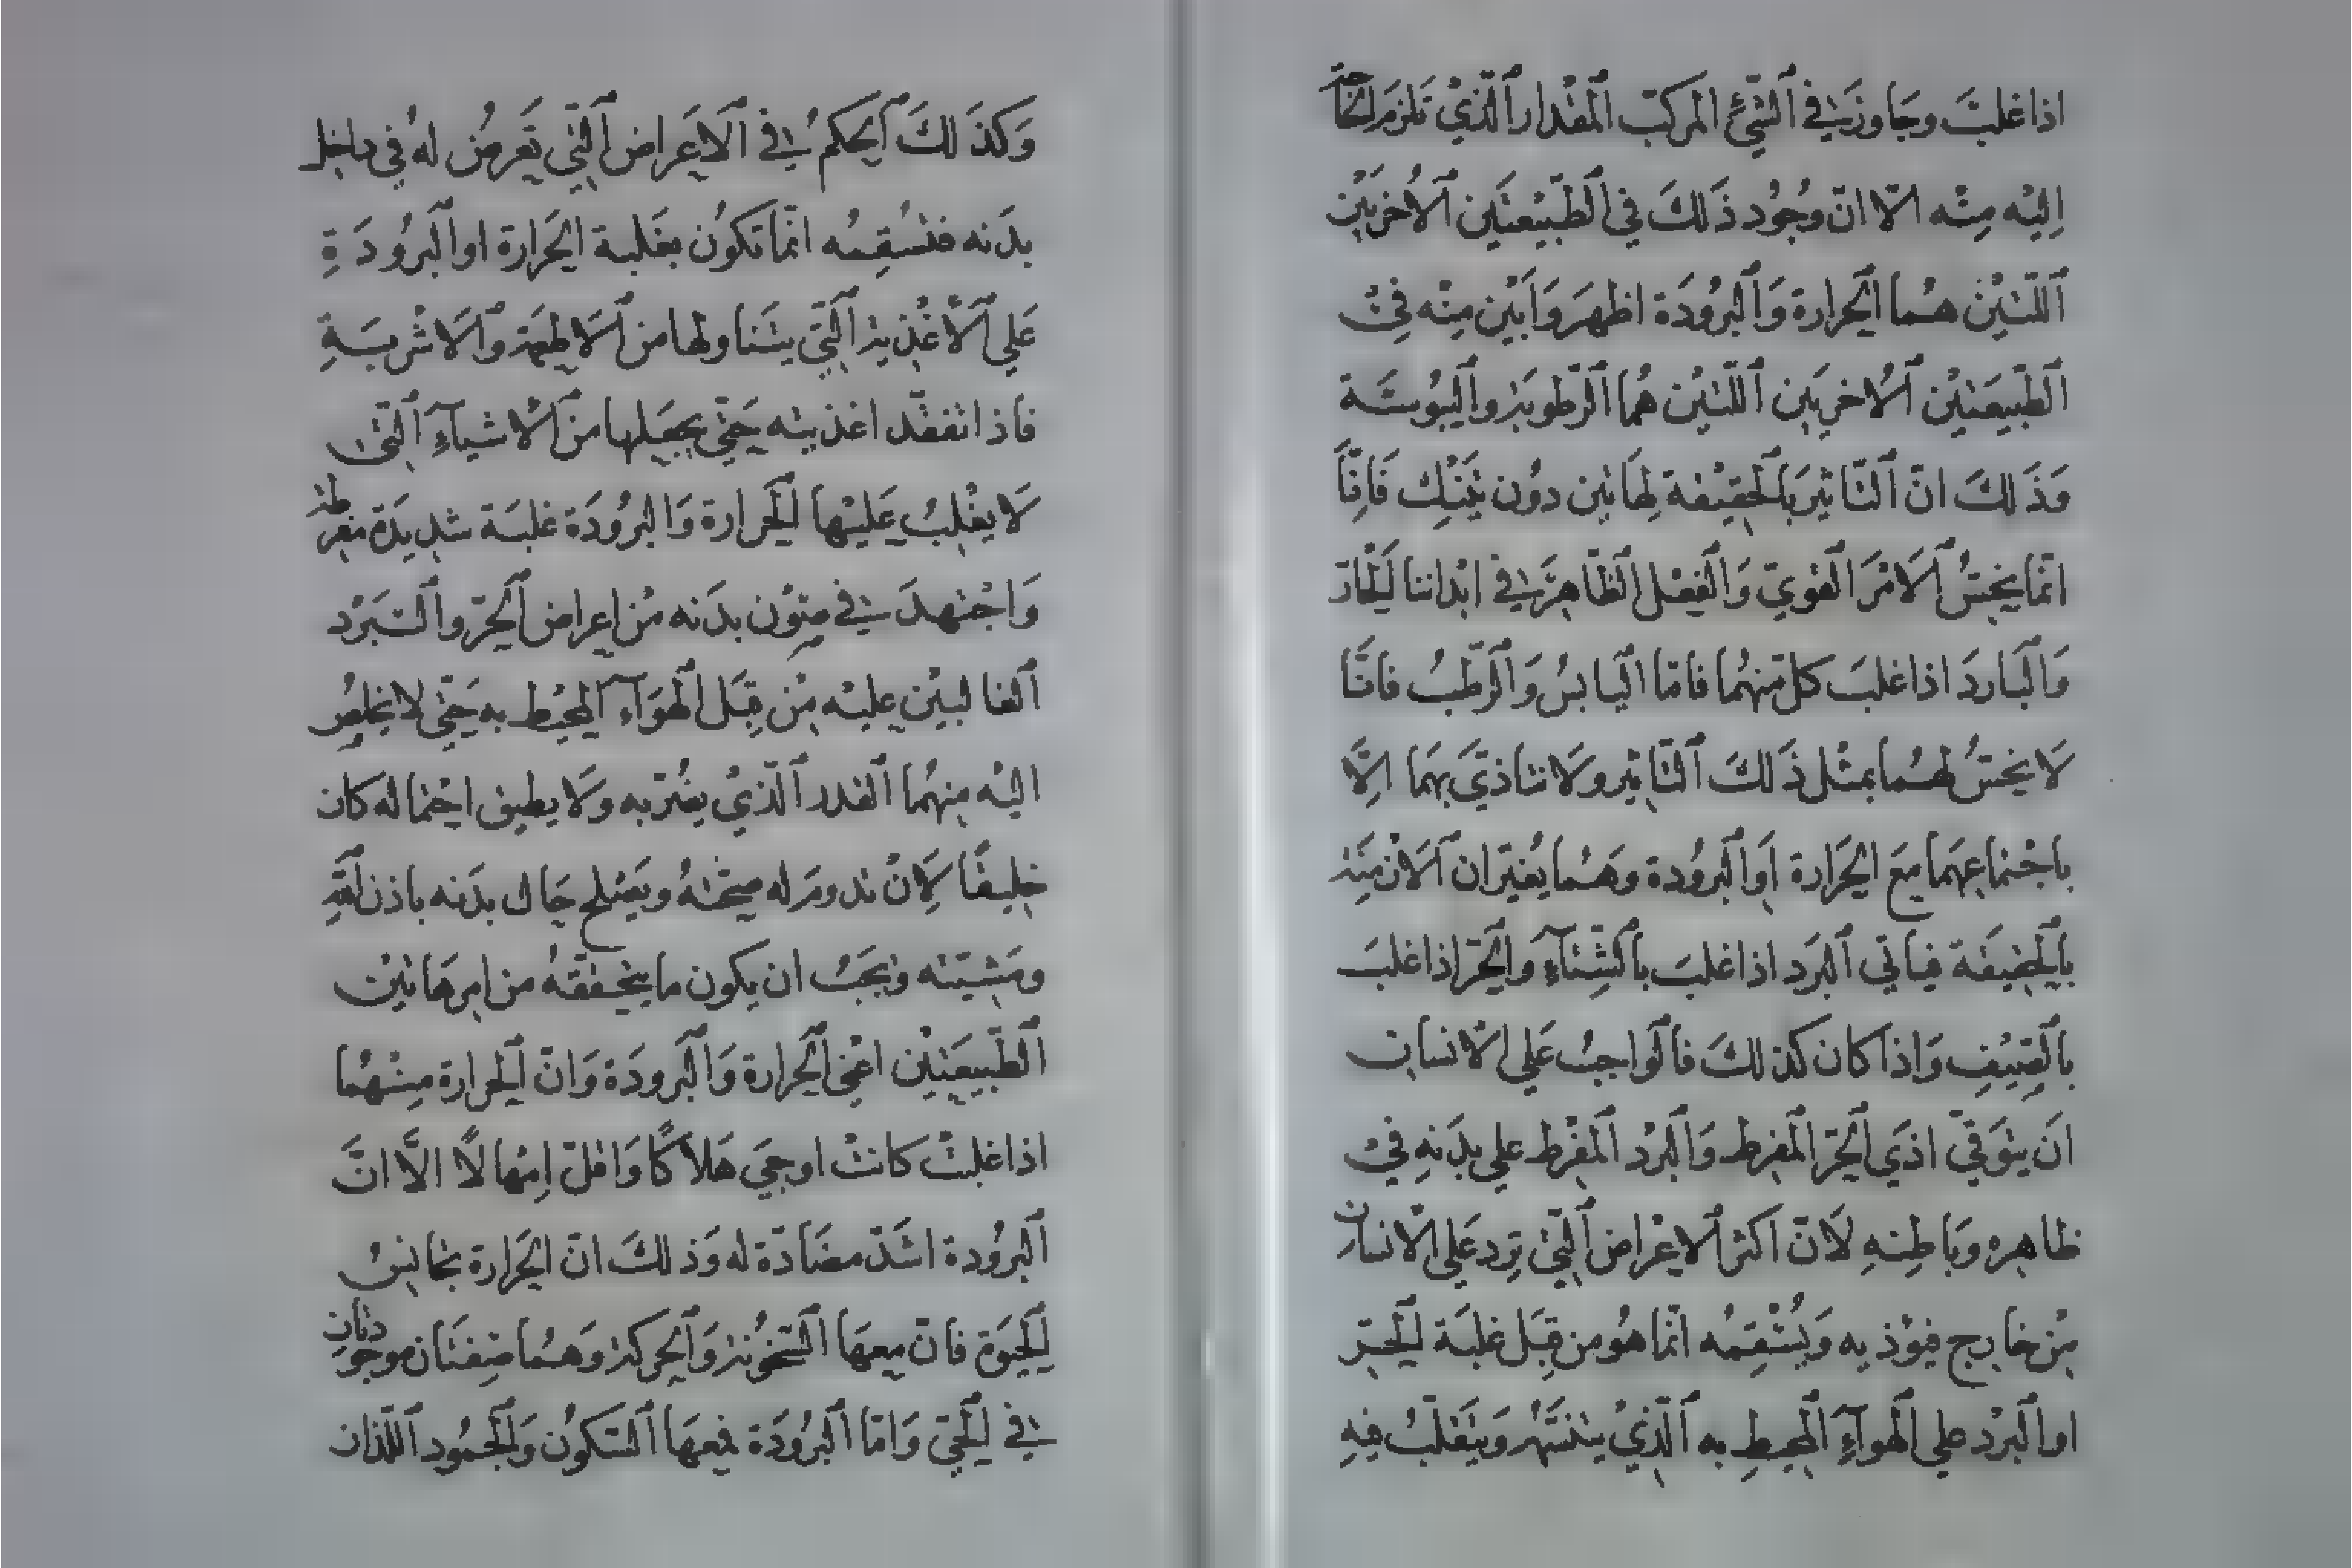 اذا غلبَت وجَاوزَت في ٱلشّيْئ المركبّ ٱلمقْدار ٱلّذيْ تلزمَ الحَاجَة
اِليْه مِنْه الّا انّ وُجُود ذَ لكَ في ٱلطّبيْعتَين ٱلاُخريَيْن
ٱللّتيْن همُا ٱلحَرارة وَٱلبرُودَة اظهرَ وَاَبْين مِنْه فيْ
ٱلطّبيعَتيْن ٱلاُخريَين ٱللّتيْن هُما ٱلرّطوبة وٱليبُوسَة
وَذَ لكَ انّ ٱلتّاثيرَ بٱلحَقيْقة لِهَاتين دوُن تيْنكِ فَاِنّا
انّما يحِسُّ ٱلاَمْرَ ٱلقويّ وَٱلفِعْل ٱلظّاهرَ في ابْداننا ٱلحَارّ
وَٱلبَاردَ اذا غلبَ كلّ مِنهُما فامّا اليَابسُ وَٱلرّطْبُ فانّا
لَا يحسّ لهُما بمثْل ذَ لكَ ٱلتّاثيْر ولَا نتاذيَّ بهمَا اِلَّا
باجْتماعِهمَا معَ ٱلحَرارة اَو ٱلبرُودة وهَمُا يُغيّران ٱلاَزْمِنَة
بٱلحَقيقَة فياتي ٱلبرَد اذا غلبَ بٱلشّتآءِ وَٱلحَرّ اذا غلبَ
بٱلصّيْفِ وَاذا كان كذ لكَ فٱلوَاجبُ عَلي الاْنسَان
انَ يتوَقيّ اذيَ ٱلحَرّ ٱلمفرط وَٱلبرْد ٱلمفْرط علي بدَنهِ فيْ
ظاهِره وبَاطِنهِ لَانّ اكثر ٱلاَعْراض ٱلتّيْ ترد عَلي الاْنسان
مِن خارج فيوْذ به وَيسُْقِمُه انّما هُو من قبِل غلبَة ٱلحَرّ
او ٱلبرْد علي ٱلهوآءِ ٱلمحِيطِ به ٱلّذيْ يتنسَّمُ وَيتقلّبُ فيهِ
وَكذَ لكَ ٱلحكمُ في ٱلاَعَراض ٱلتّي تَعَرضُ لهُ في داخِل
بدَنه فتسُْقِمُه انّما تكوُن بغَلبة ٱلحَرارة او ٱلبَرُودَ ةِ
عَلي ٱلاَغْذية ٱلتّي يتنَاولها من ٱلاَطعِمَة وٱلاَشْربَةِ
فاذا تفقّد اغذيته حَتيّ يجعَلها منَ ٱلاْشيآءِ ٱلتّيْ
لَا يغْلبُ عَليْها ٱلحَرارة وَالبرُودَة غلبَة شديدَة مفرطة
وَاجْتهدَ في صَوْن بدَنه منْ اعراض ٱلحَرّ وٱلبَرْد
ٱلغا لبيْن عليْه منْ قِبَل ٱلهوَآء ٱلمحيْط به حَتيّ لا يخلصُ
اليْه مِنهُما ٱلقدر ٱلّذيْ يضُرّ به ولَا يطيق احْتماله كان
خليقًا لِاَنْ تدومَ له صِحّتهُ ويصَْلح حَال بدَنه باذن ٱللّهِ
ومَشِيّته وَيجَبُ ان يكون ما يتحققّهُ من امر هَاتيْن
ٱلطّبيعَتيْن اعْني ٱلحَرارة وَٱلبَرودَة وَانّ ٱلحَرارة منْهُما
اذا غلبتْ كانتْ اوحيَ هَلاَكًا وَاقلّ اِمْهالًا الَّا انَّ
ٱلبرُودة اشَدّ مضَادّة له وَذ لكَ انّ ٱلحَرارة تجَانسُ
ٱلحيَوٰة فانّ معهَا ٱلسّخُونة وَٱلحرَكة وَهُما صِفتَان موجُودتان
في ٱلحَيّ وَامّا ٱلبرُودَة فمعهَا ٱلسّكوُن وَٱلجمُود ٱللّذان